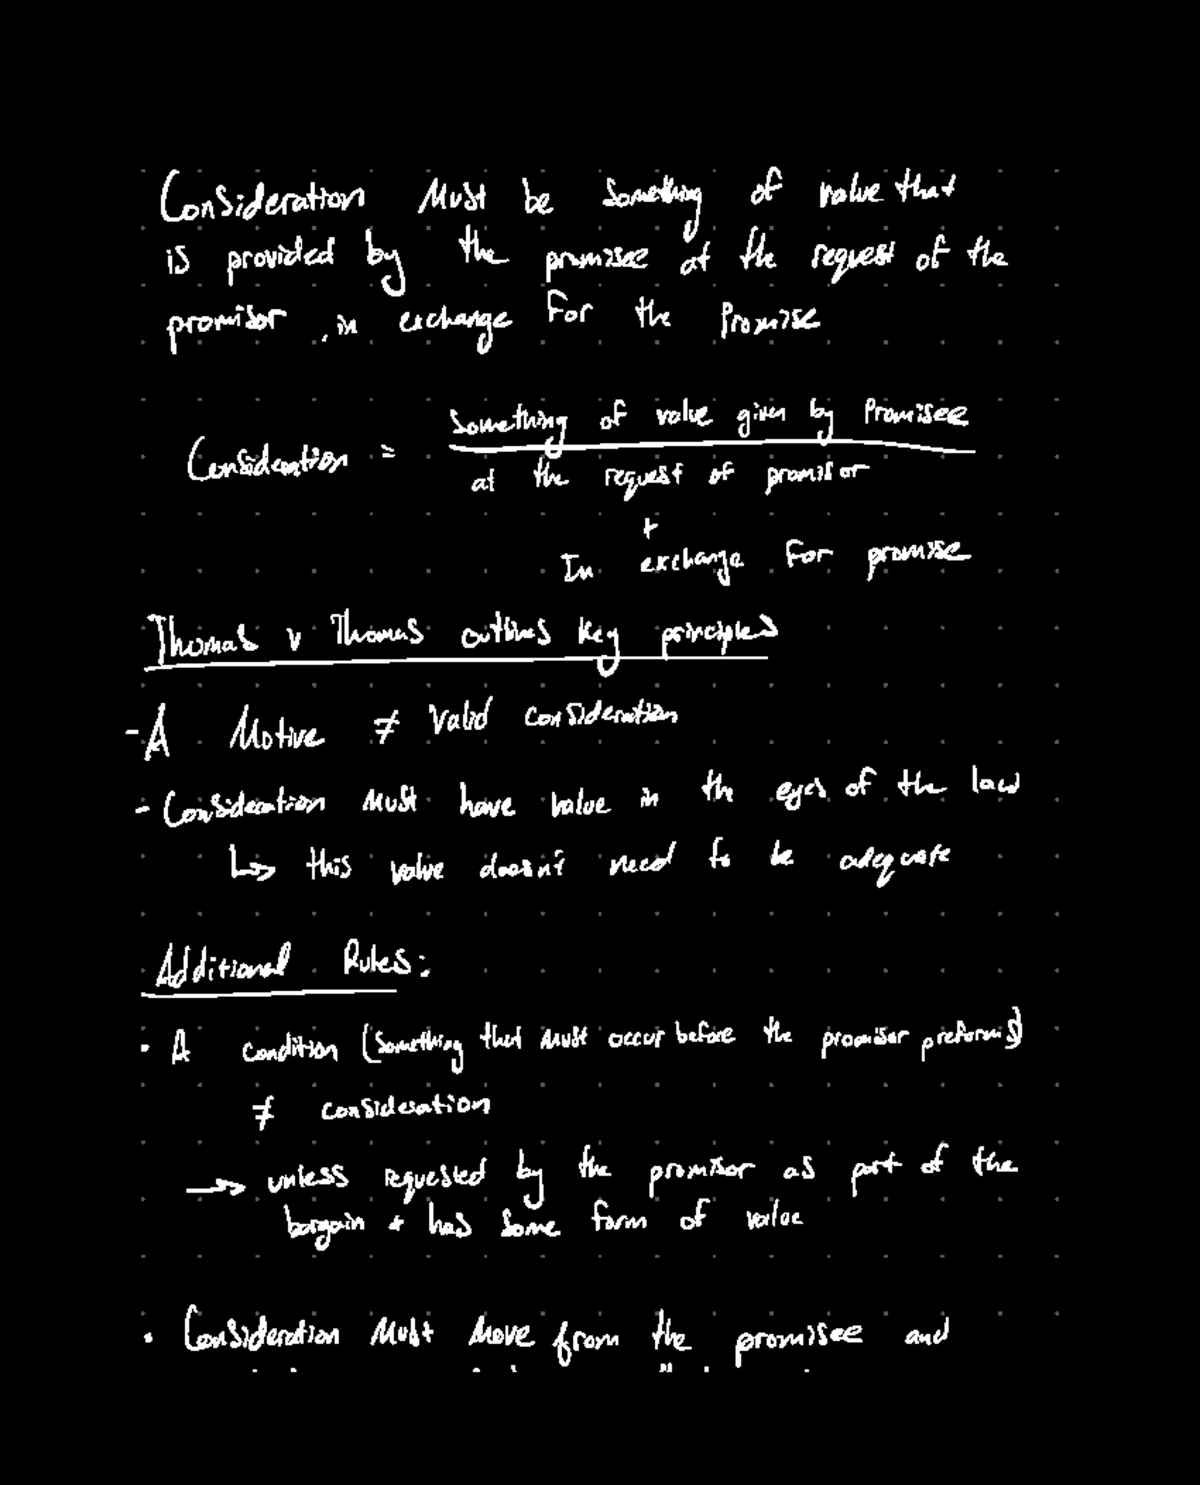 Consideration Must be Something of value that
is provided by the promisee at the request of the
promisor, in exchange For the Promise
Consideration = Something of value given by Promisee
at the request of promisor
+
In exchange For promise
Thomas v Thomas outlines Key principles
- A Motive ≠ Valid consideration
- Consideration Must have value in the eyes of the law
↳ this value doesn't need to be adequate
Additional Rules:
• A condition (Something that Must occur before the promisor preforms)
≠ consideration
→ unless requested by the promisor as part of the
bargain + has Some form of value
• Consideration Must Move from the promisee and